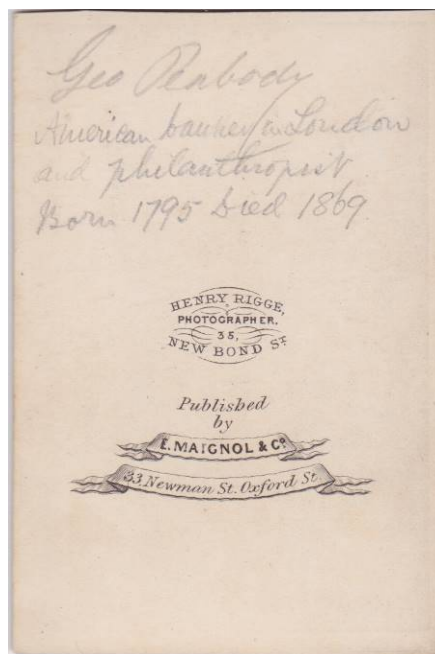 Geo Peabody
American banker in London
and philanthropist
Born 1795 Died 1869
HENRY RIGGE,
PHOTOGRAPHER.
35,
NEW BOND ST
Published
by
E. MAIGNOL & CO
33, Newman St. Oxford St.